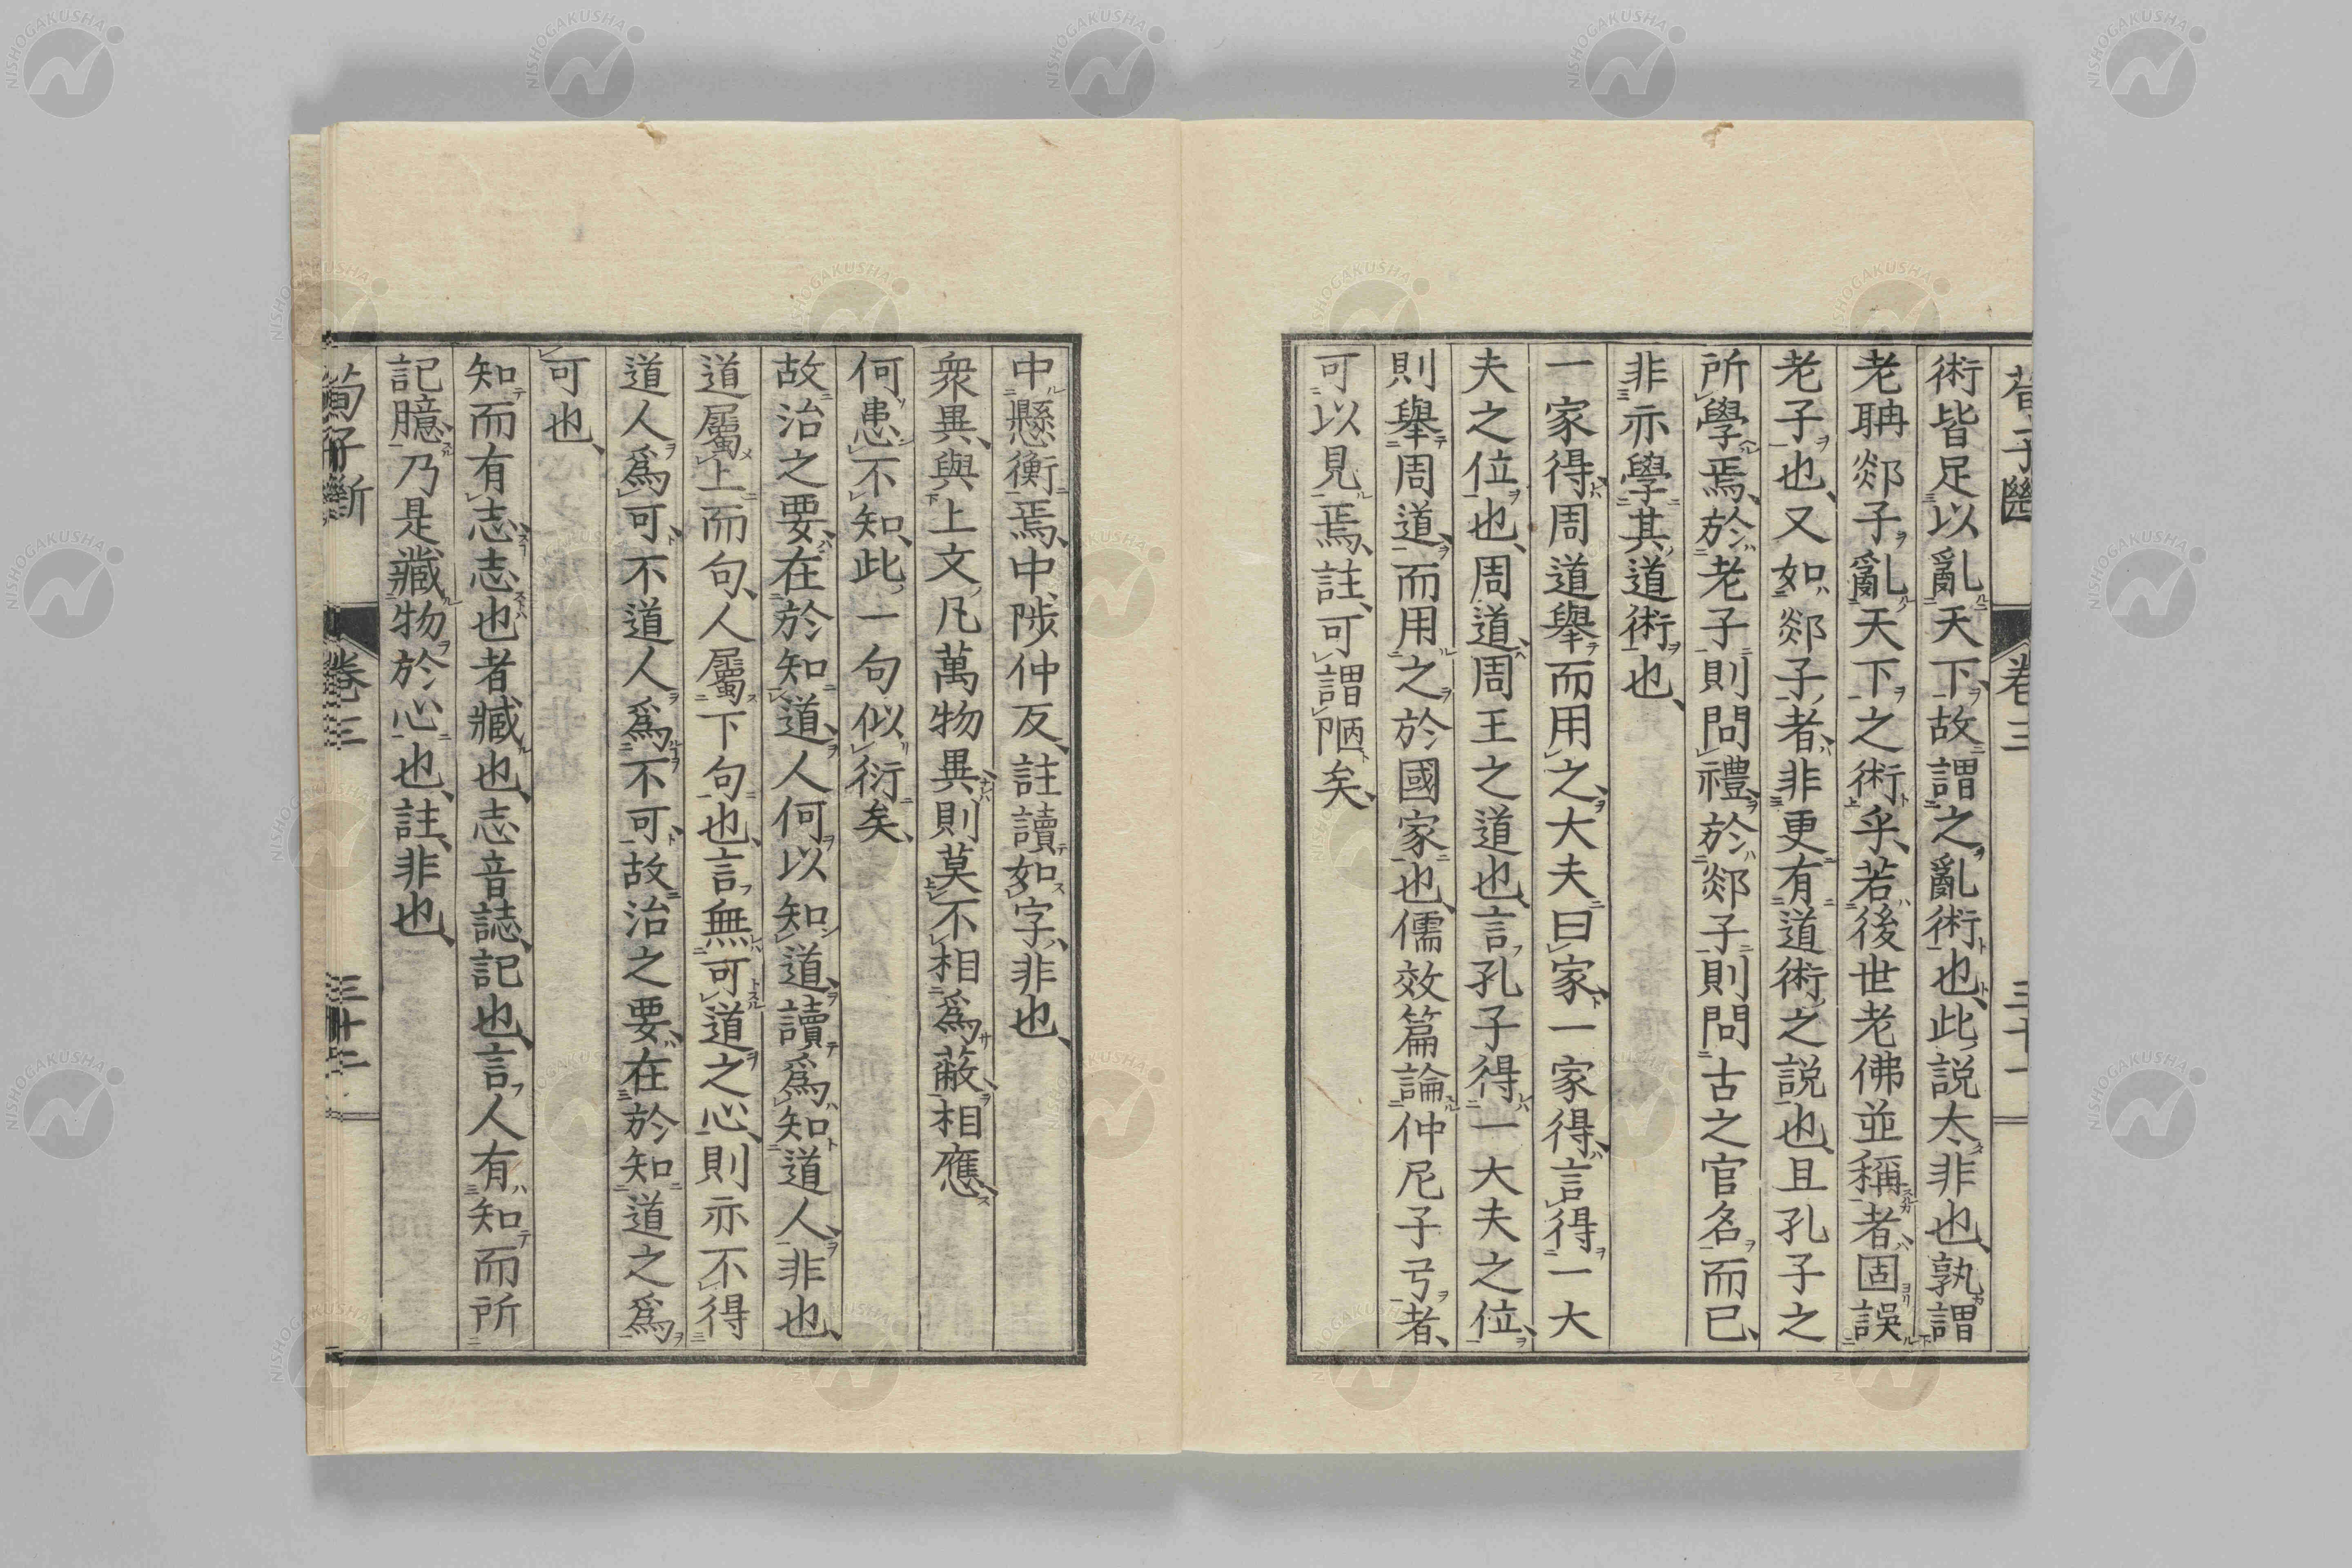 術皆足以亂天下、故謂之亂術也、此説太非也、孰謂
老聃郯子亂天下之術乎、若後世老佛並稱者固誤
老子也、又如郯子者、非更有道術之説也、且孔子之
所學焉、於老子則問禮、於郯子則問古之官名而已、
非亦學其道術也、
一家得周道舉而用之、大夫曰家、一家得、言得一大
夫之位也、周道、周王之道也、言孔子得一大夫之位、
則舉周道、而用之於國家也、儒效篇論仲尼子弓者、
可以見焉、註、可謂陋矣、
中懸衡焉、中陟仲反、註讀如字、非也、
衆異、與上文凡萬物異則莫不相爲蔽、相應、
何患不知、此一句似衍矣、
故治之要、在於知道、人何以知道、讀爲知道人、非也、
道屬上而句、人屬下句也、言無可道之心、則亦不得
道人爲可、不道人爲不可、故治之要、在於知道之爲
可也、
知而有志、志也者臧也、志音誌、記也、言人有知而所
記臆、乃是藏物於心也、註、非也、
荀子斷 卷三 三十二
卷三
NISHOGAKUSHA